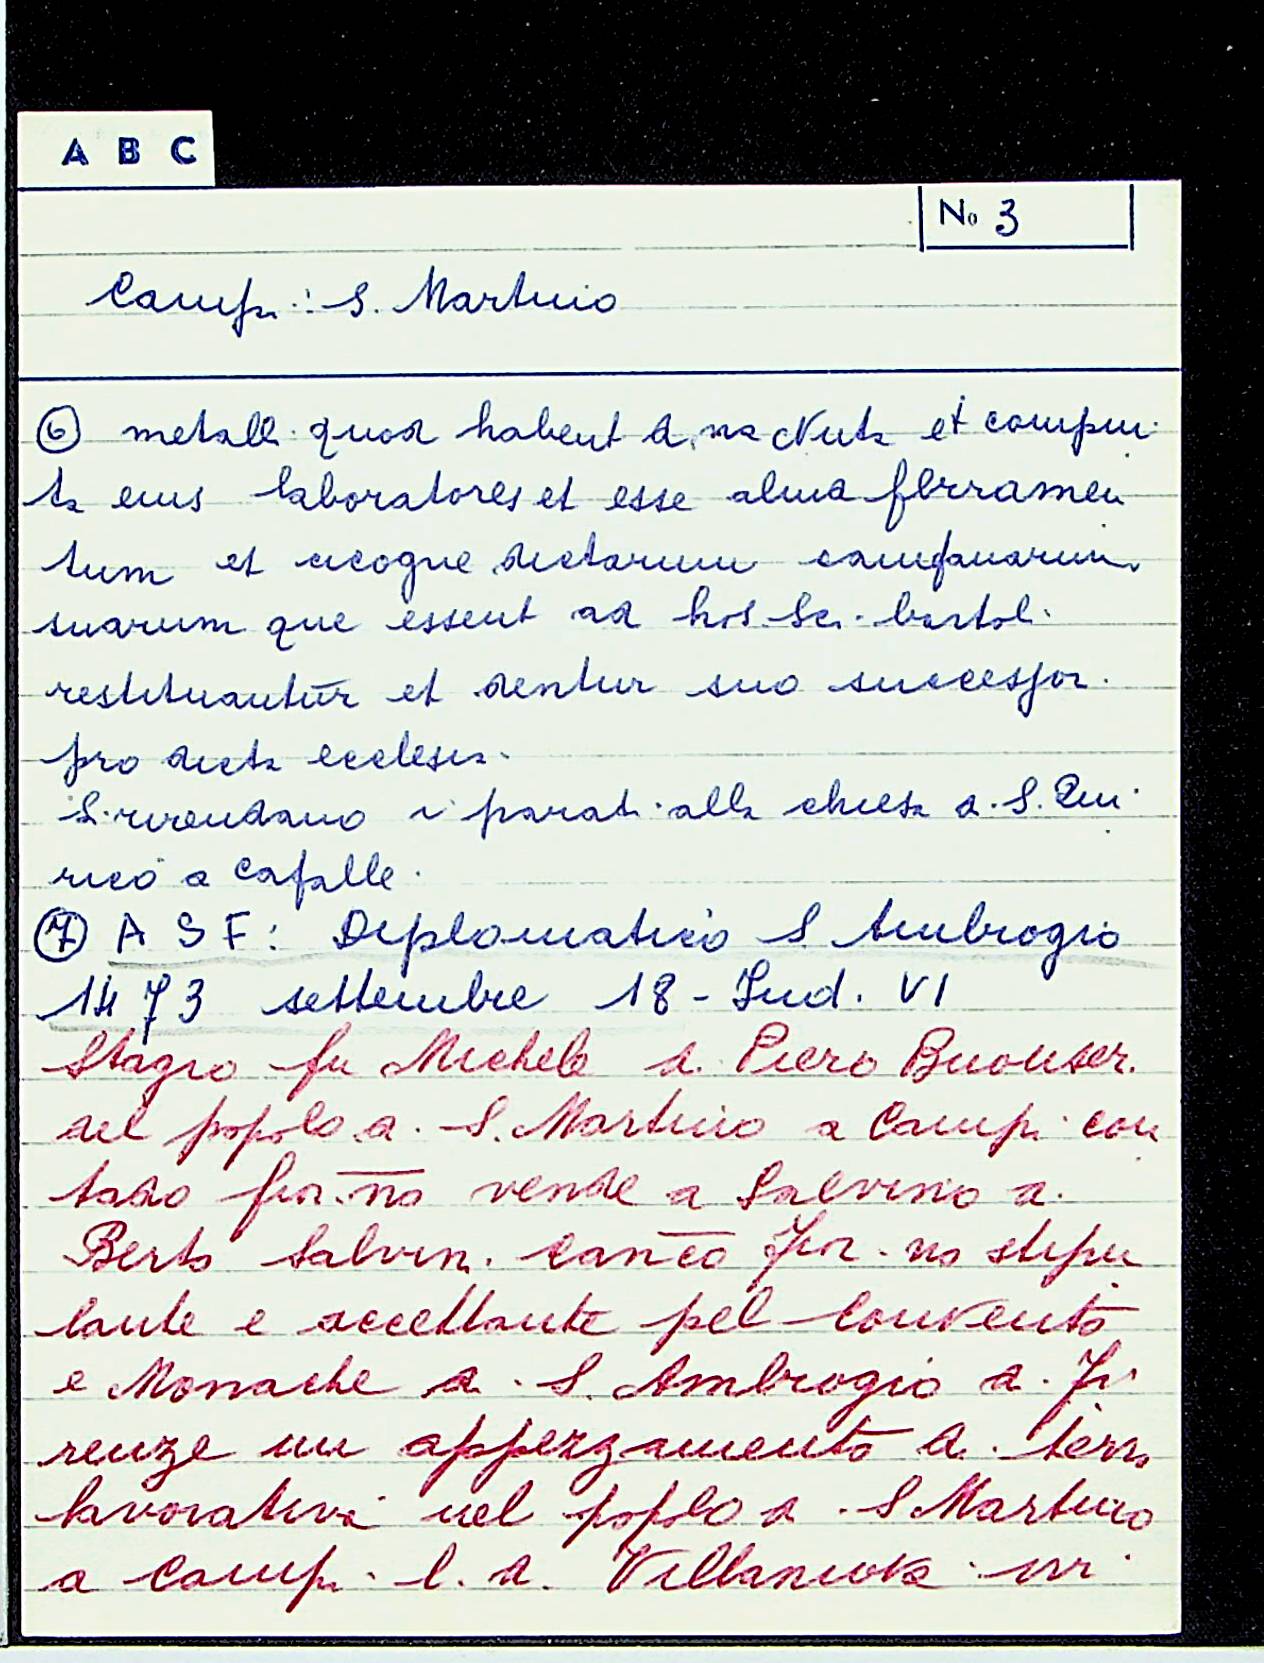 A B C
No 3
Campi: S. Martino
⑥ metall. quod habent d.na Nuta et compu
ta eius laboratores et esse alma ferramen
tum et cicogne dictarum campanarum
suarum que essent ad hos. Sci. bartol.
restituantur et dentur suo successor.
pro dicta ecclesia.
Si rivendano i parati alla chiesa di S. Qui
rico a Capalle.
⑦ A S F: Diplomatico S Ambrogio
1473 settembre 18 - Ind. VI
Stagio fu Michele di Piero Buonster.
del popolo di S. Martino a Campi con
tado fior.no vende a Salvino di
Berto Salvini can.co Fior.no stipu
lante e accettante pel Convento
e Monache di S. Ambrogio di Fi
renze un appezzamento di terra
lavorativa nel popolo di S Martino
a Campi l. d. Villanuova